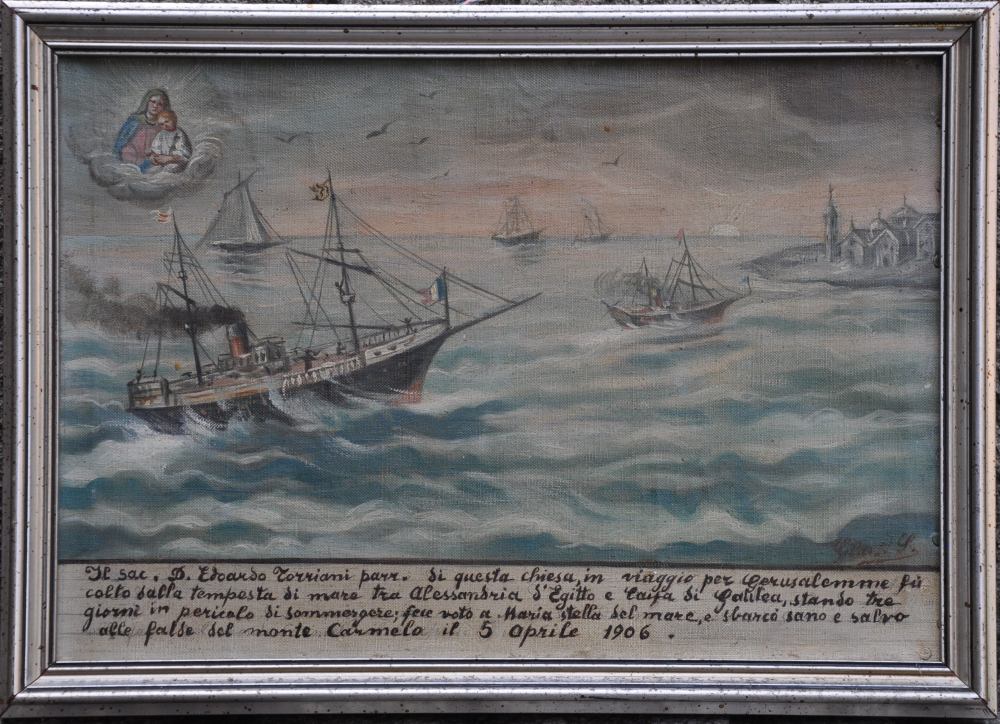 Il sac. D. Edoardo Torriani parr. di questa chiesa, in viaggio per Gerusalemme fù
colto dalla tempesta di mare tra Alessandria d'Egitto e Caifa di Galilea, stando tre
giorni in pericolo di sommergere; fece voto a Maria stella del mare, e sbarcò sano e salvo
alle falde del monte Carmelo il 5 Aprile 1906.